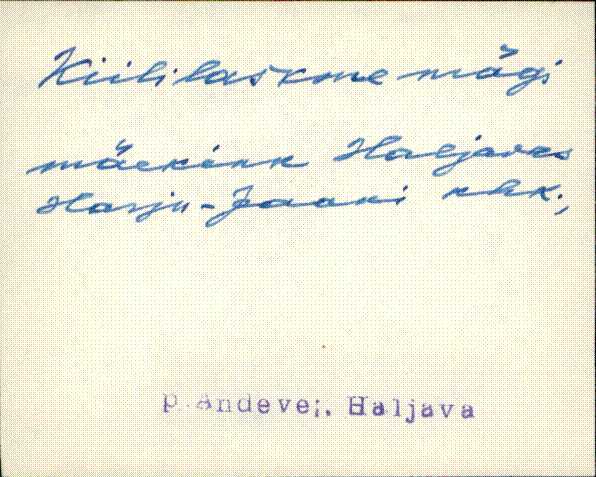 Kiililaskme mägi
mäekink Haljavas
Harju-Jaani khk.,
p. Andevei, Haljava